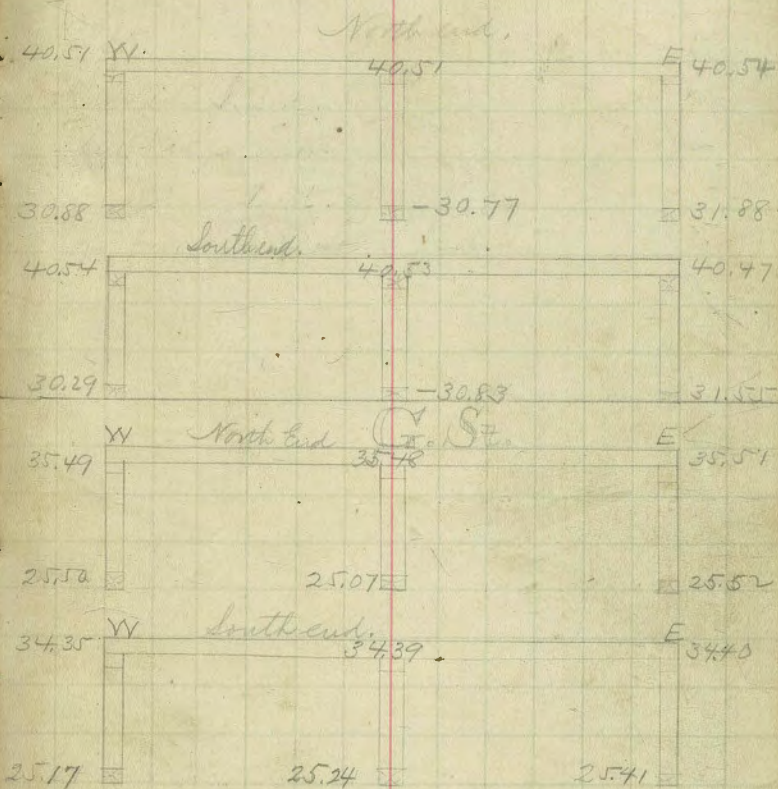 North end.
40.51 W. 40.51 E 40.54
30.88 -30.77 31.88
South end.
40.54 40.53 40.47
30.29 -30.83 31.55
G. St.
W North End E
35.49 35.48 35.51
25.50 25.07 25.52
W South end. E
34.35 34.39 34.40
25.17 25.24 25.41